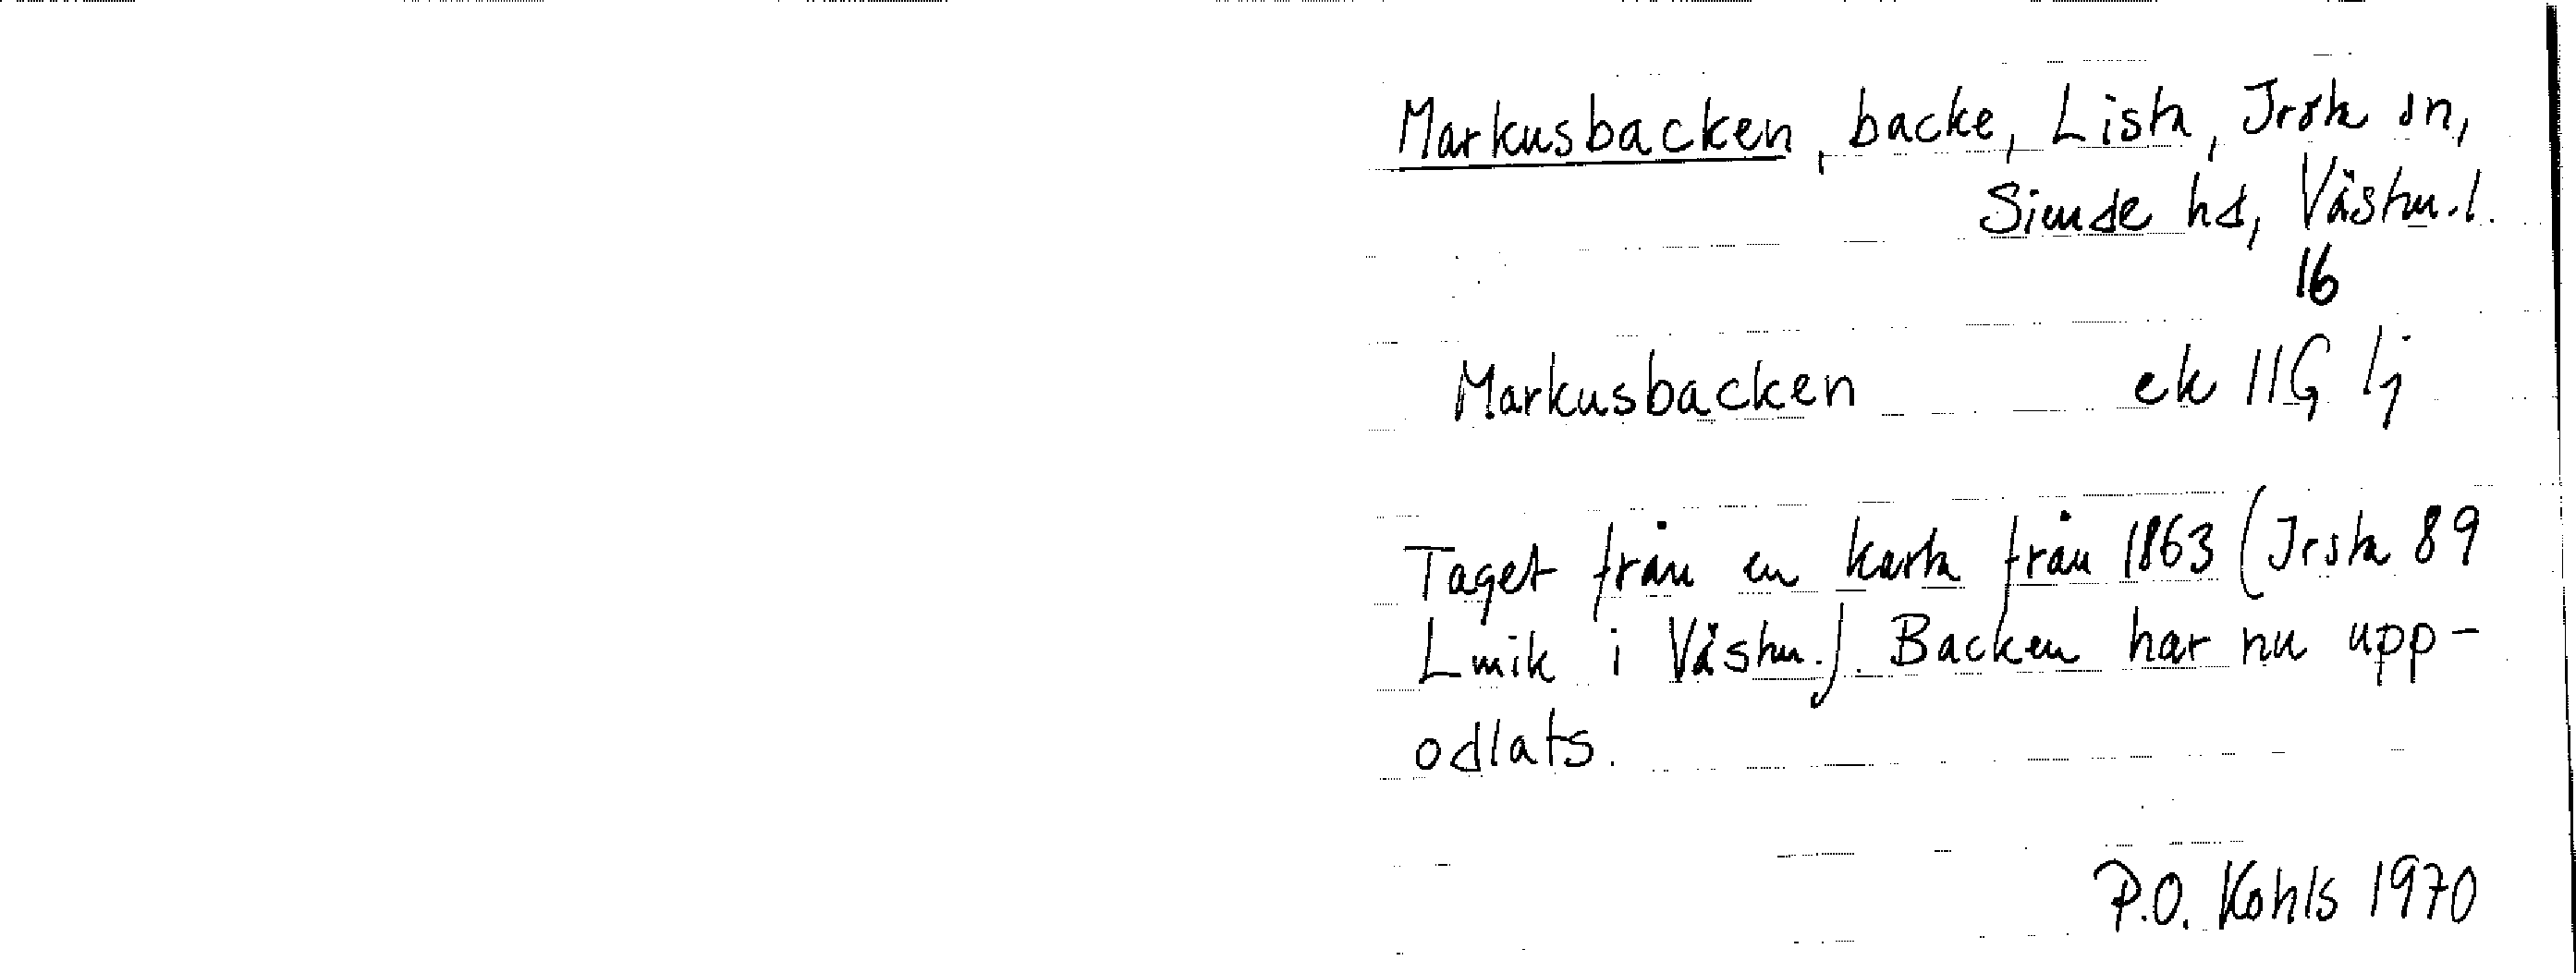 Markusbacken, backe, Lista, Irsta sn,
Siende hd, Västm.l.
16
Markusbacken ek 11G 1j
Taget från en karta från 1863 (Irsta 89
Lmik i Västm.). Backen har nu upp-
odlats.
P.O. Kohls 1970